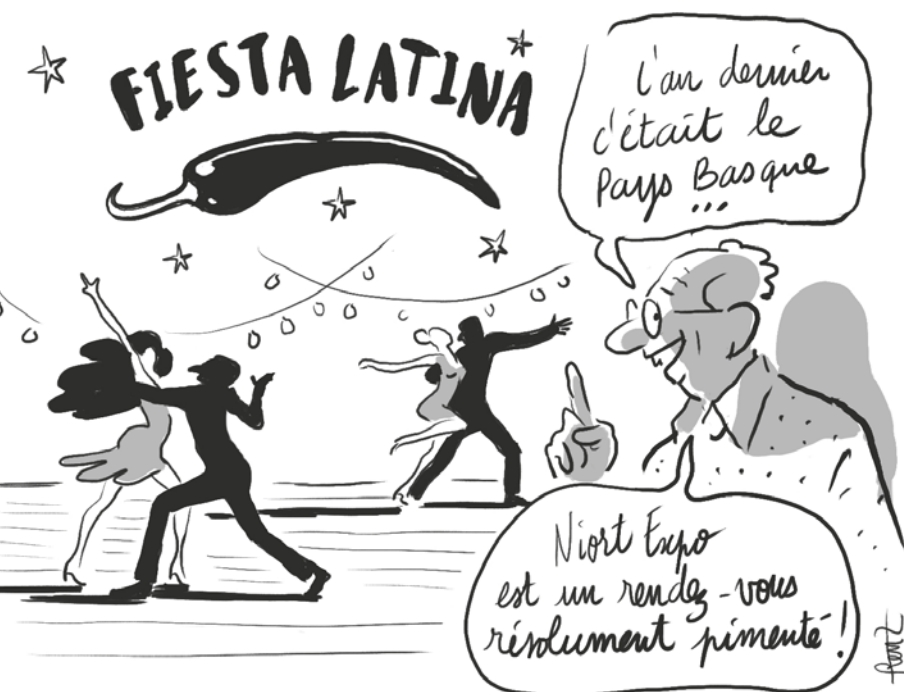 FIESTA LATINA
L'an dernier
c'était le
Pays Basque
...
Niort Expo
est un rendez-vous
résolument pimenté !